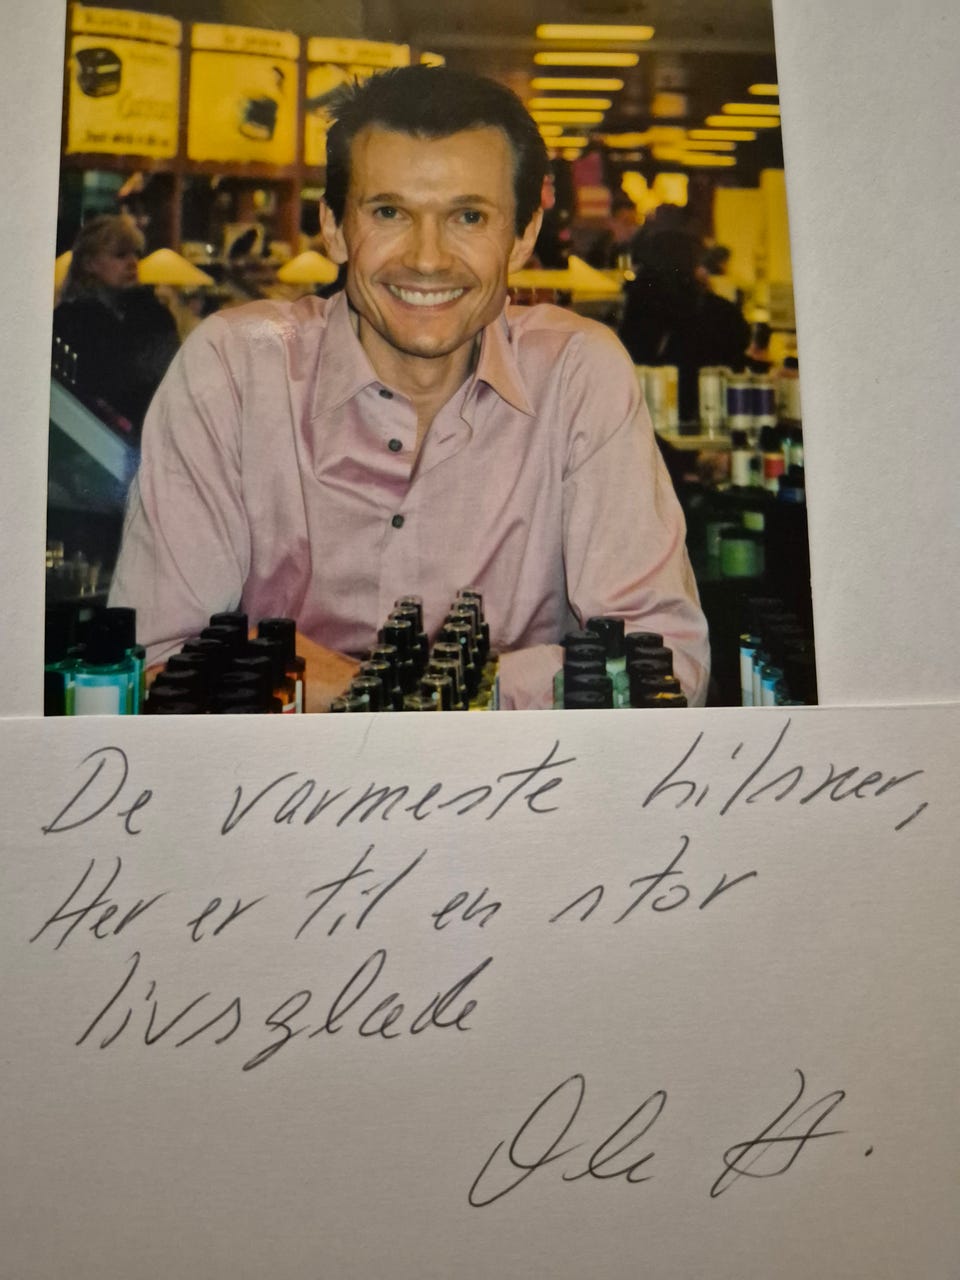 De varmeste hilsner,
Her er til en stor
livsglæde
Ole H.